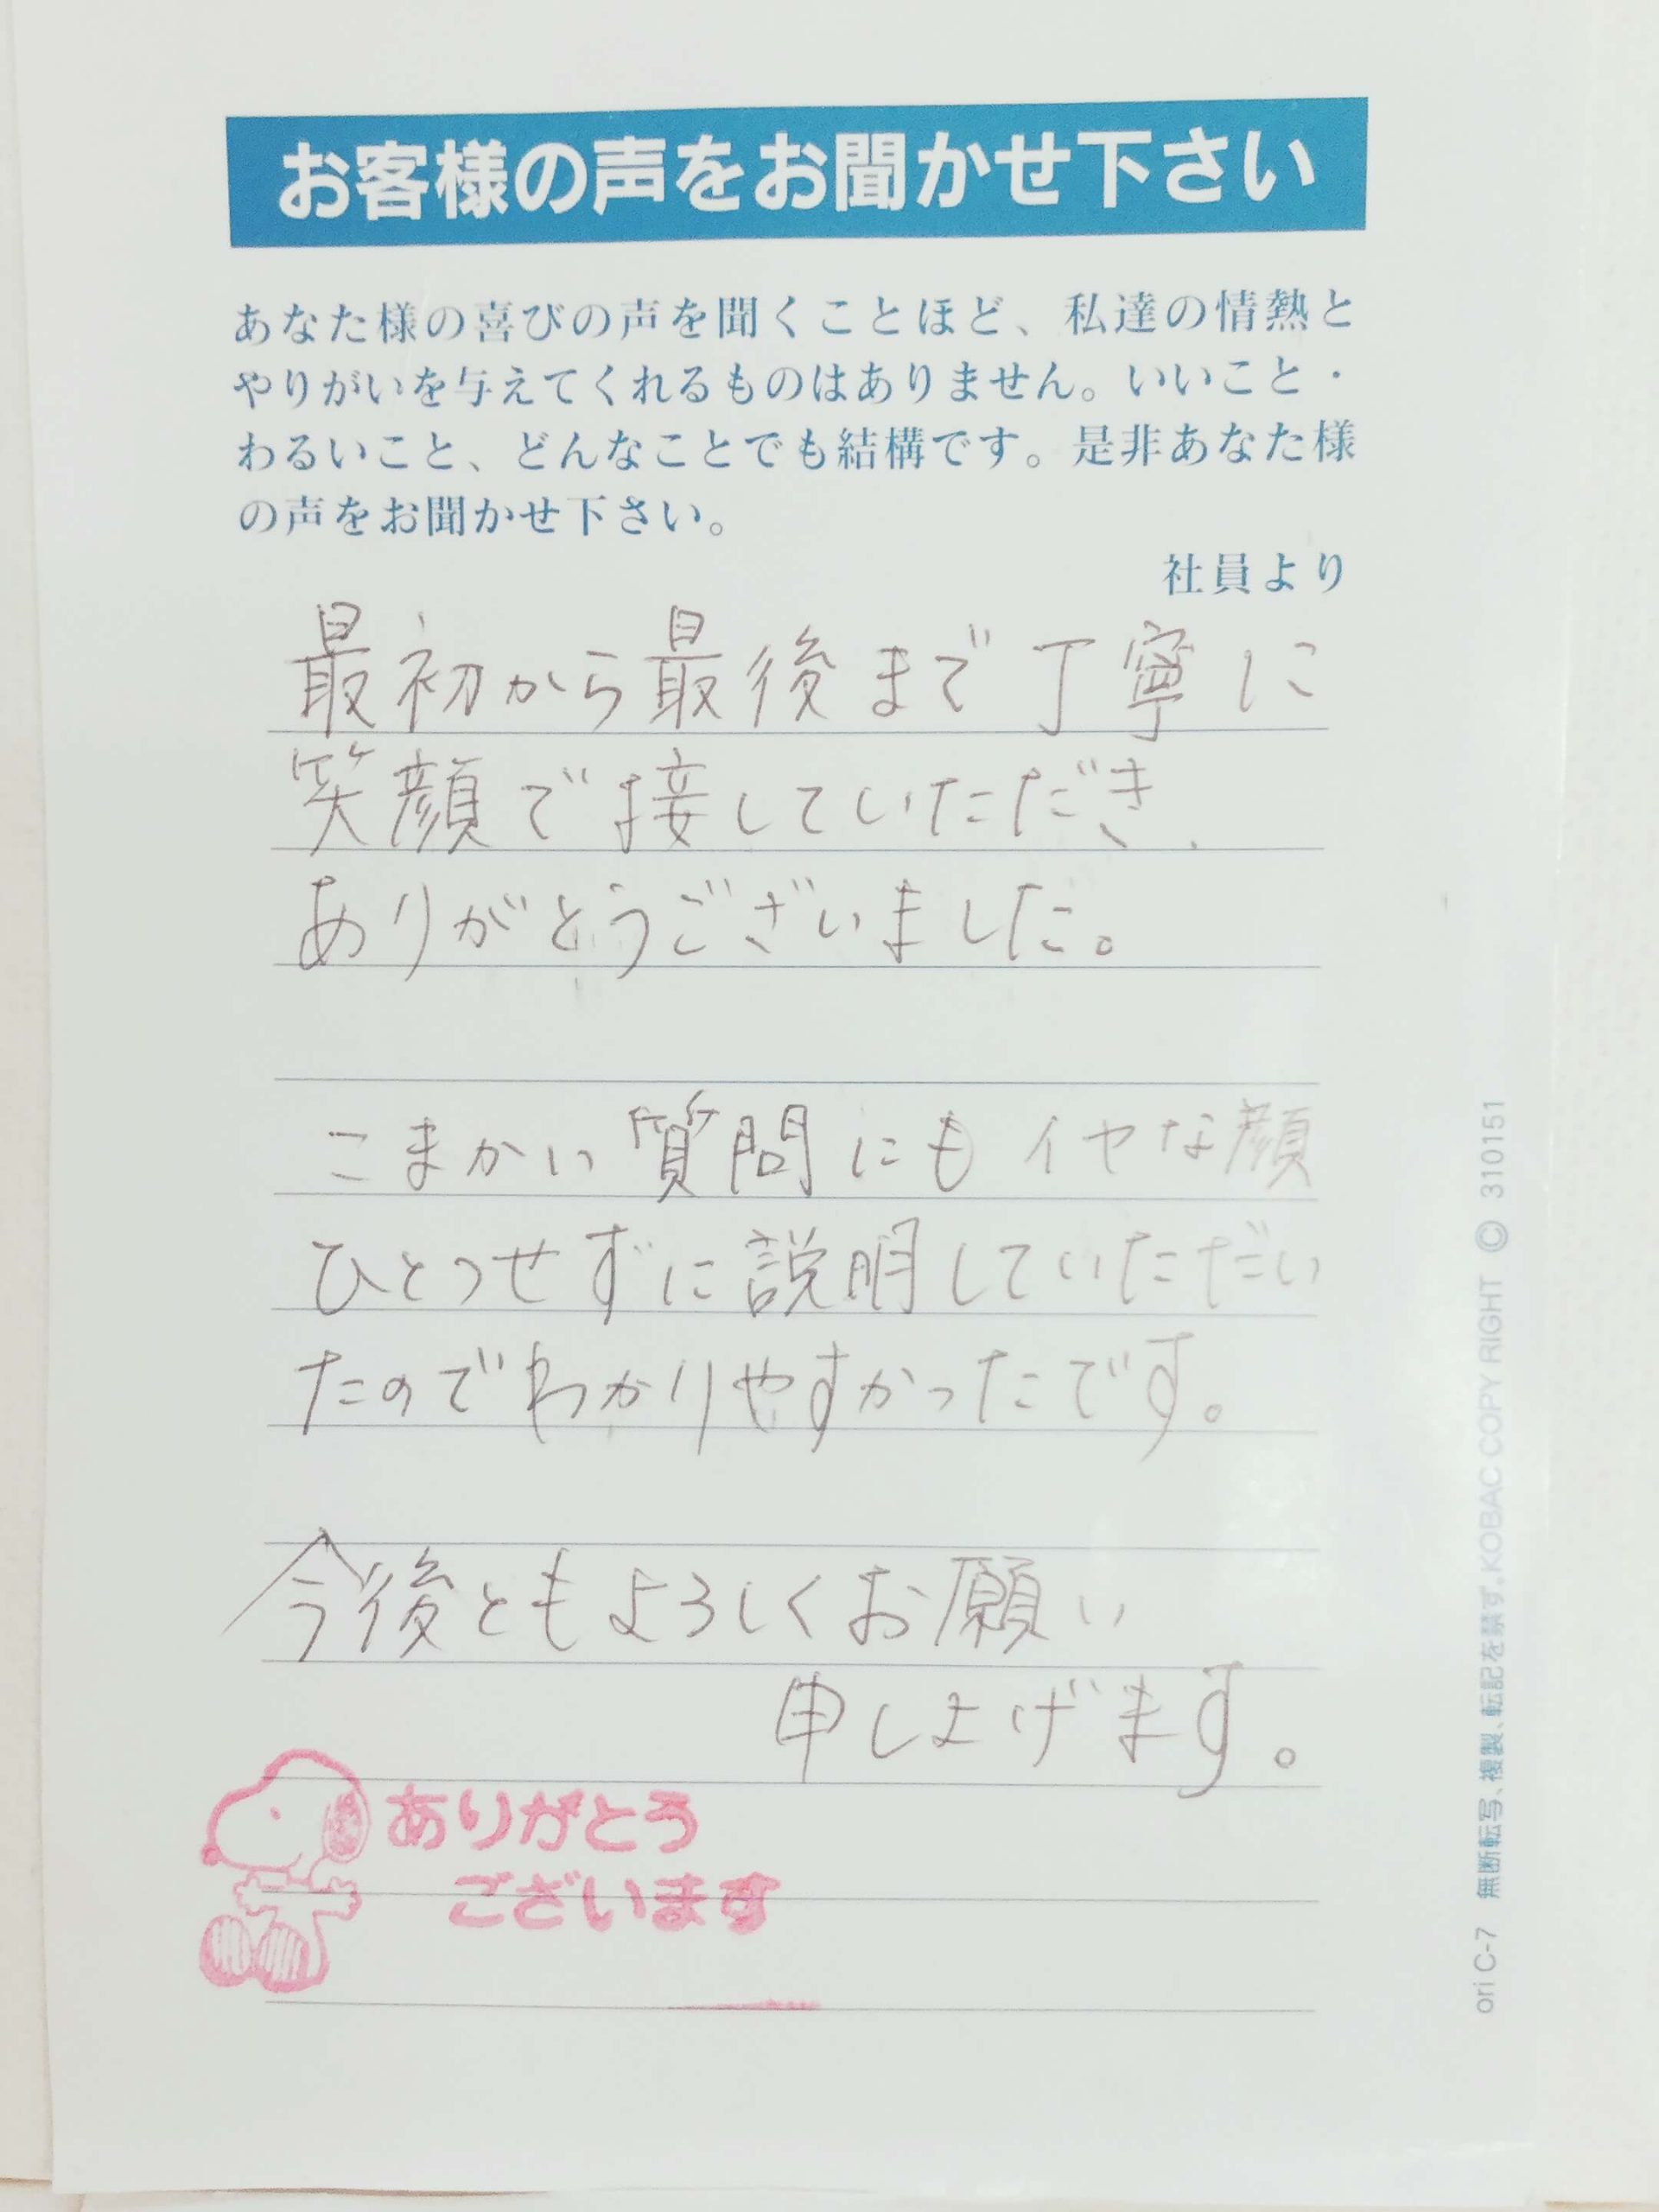 お客様の声をお聞かせ下さい
あなた様の喜びの声を聞くことほど、私達の情熱と
やりがいを与えてくれるものはありません。いいこと・
わるいこと、どんなことでも結構です。是非あなた様
の声をお聞かせ下さい。
社員より
最初から最後まで丁寧に
笑顔で接していただき、
ありがとうございました。
こまかい質問にもイヤな顔
ひとつせずに説明していただい
たのでわかりやすかったです。
今後ともよろしくお願い
申し上げます。
ありがとう
ございます
ori C-7 無断転写、複製、転記を禁ず。KOBAC COPY RIGHT © 310151